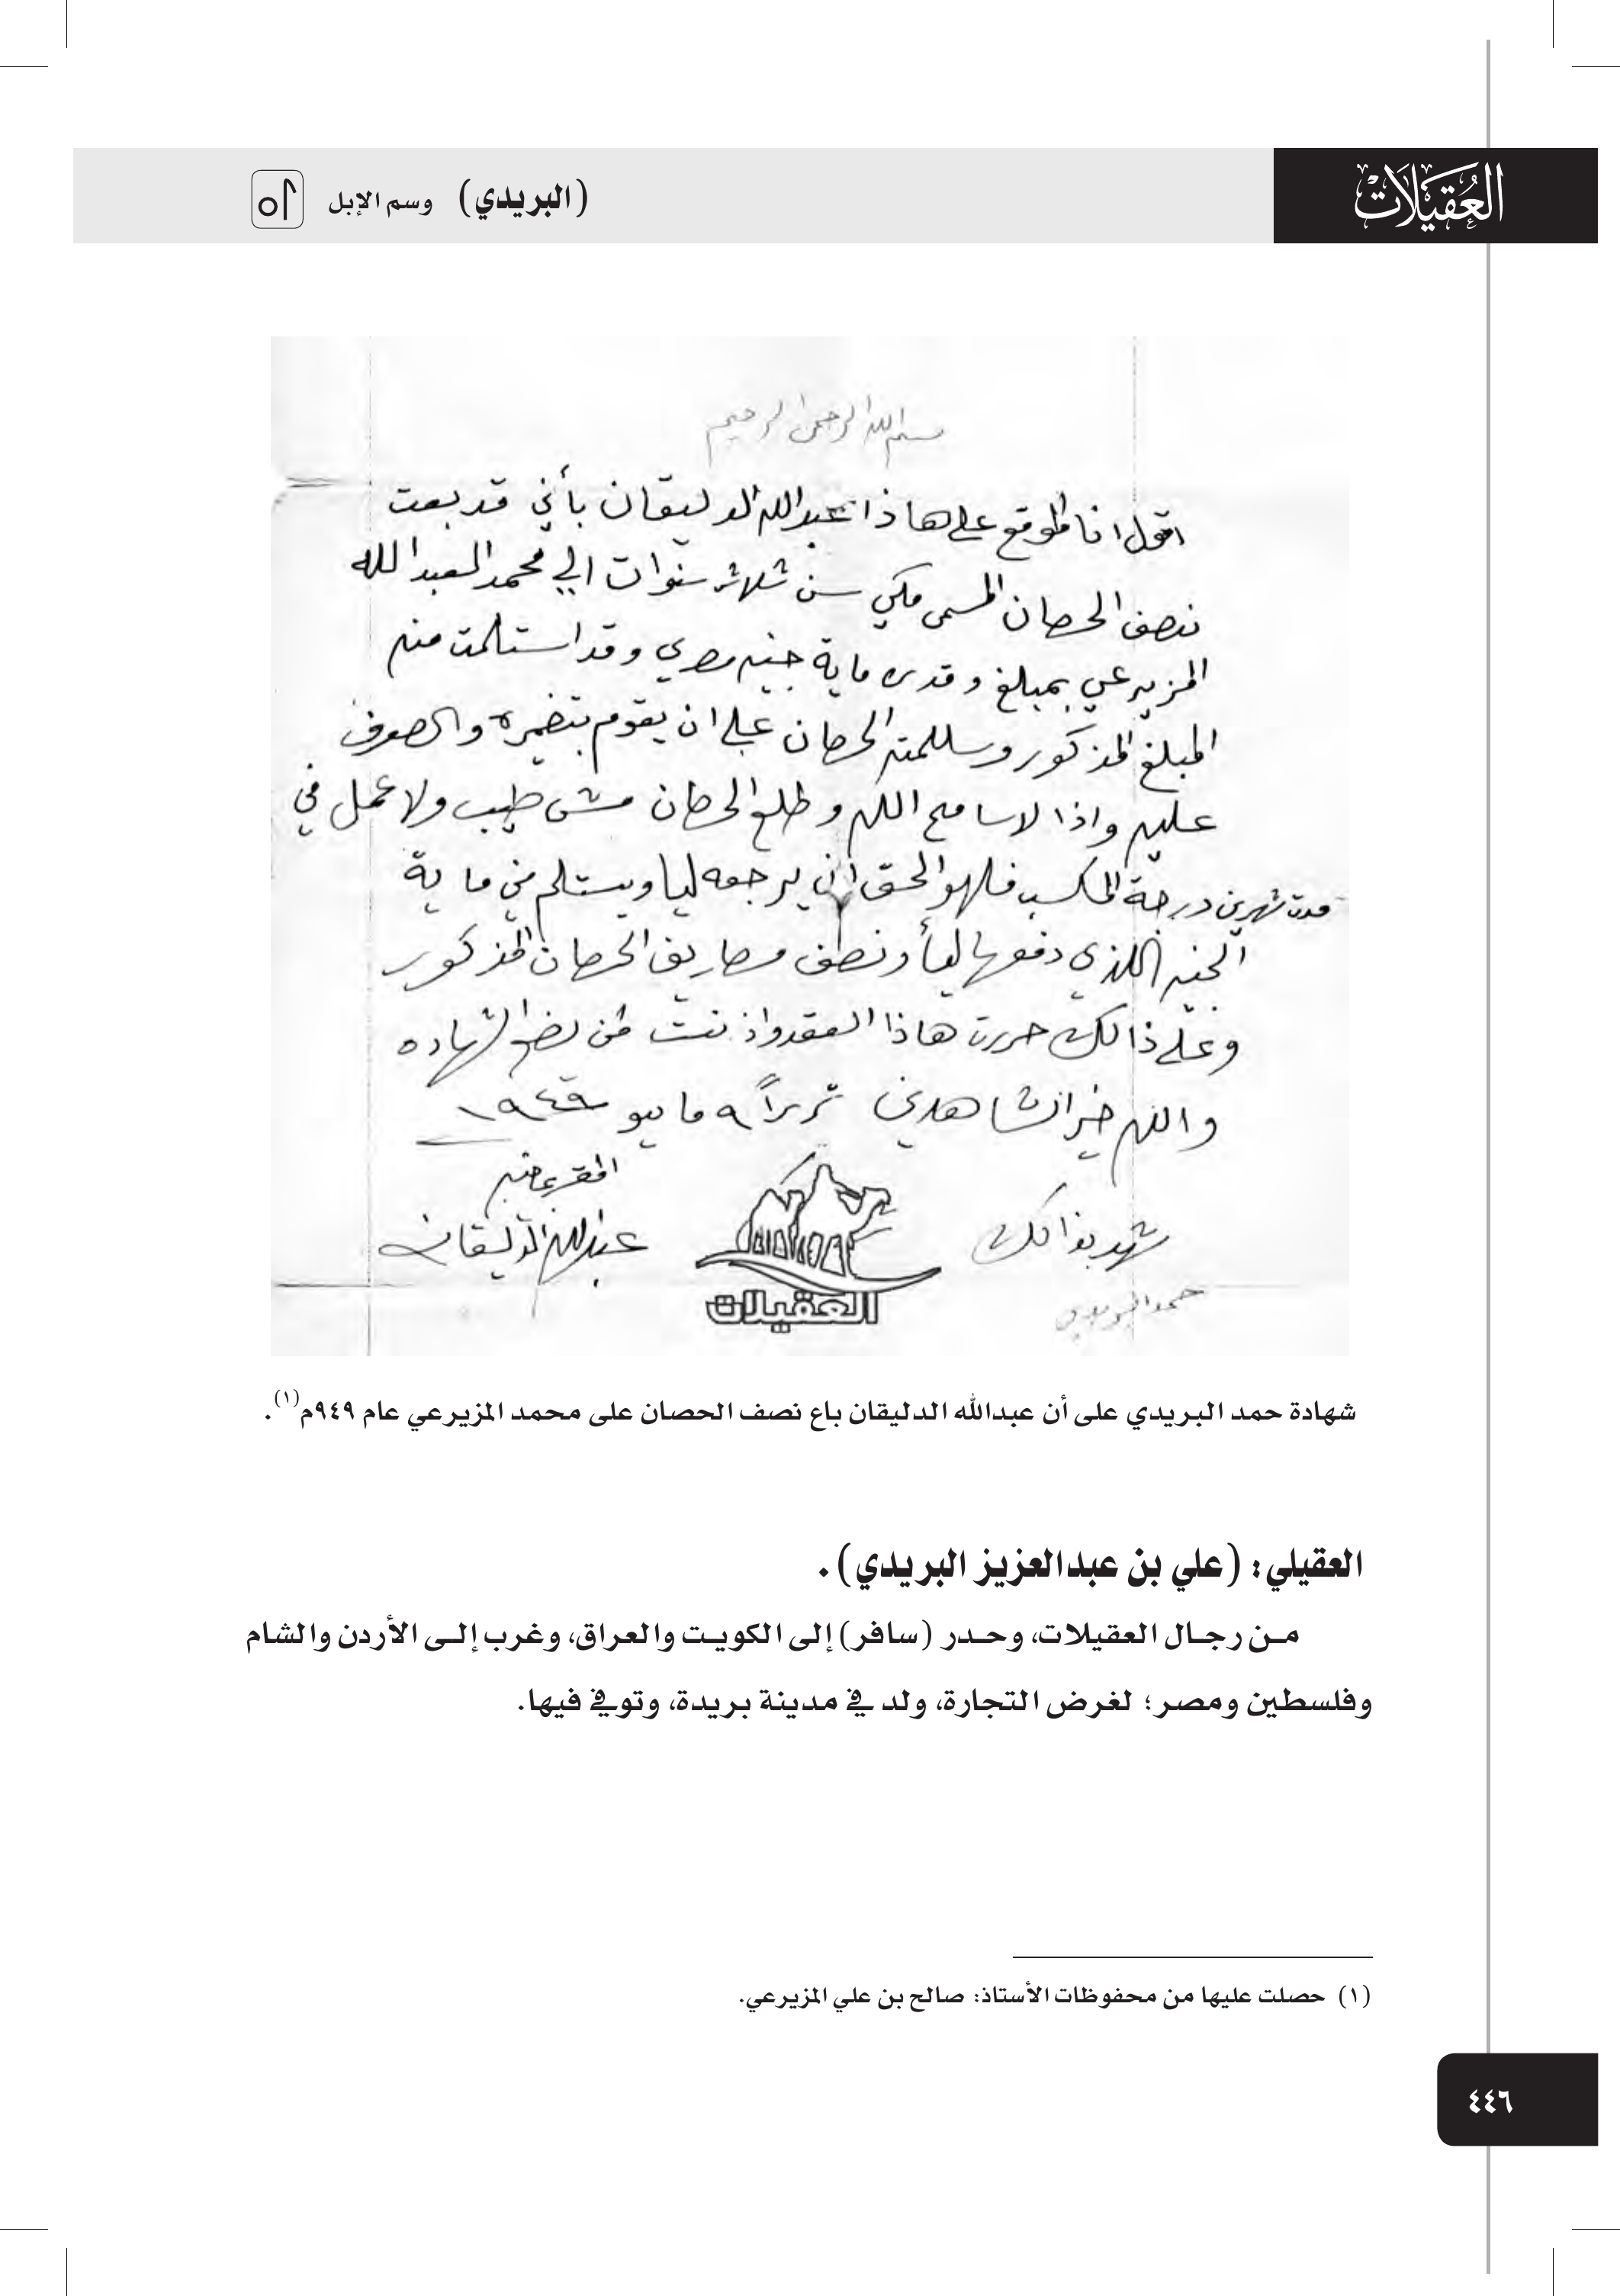 العُقَيْلَات
(البريدي) وسم الإبل
بسم الله الرحمن الرحيم
اقول انا الموقع على هاذا عبدالله الدليقان بأني قد بعت
نصف الحصان المسمى مكي سن ثلاث سنوات الي محمد العبدالله
المزيرعي بمبلغ وقدره ماية جنيه مصري وقد استلمت منه
المبلغ المذكور وسللمته الحصان على ان يقوم بتضميره والصرف
عليه واذا لاسامح الله وطلع الحصان مش طيب ولا عمل في
مدت شهرين درجة المكسب فلهو الحق ان يرجعه ليا ويستلم مني ماية
الجنيه اللذي دفعها ليا ونصف مصاريف الحصان المذكور
وعلى ذالك حررت هاذا العقد واذنت من يضع الشهاده
والله خير الشاهدين تحريراً ٩ مايو ١٩٤٩
المقر بما فيه
شهد بذالك
عبدالله الدليقان
حمد البريدي
العقيلات
شهادة حمد البريدي على أن عبدالله الدليقان باع نصف الحصان على محمد المزيرعي عام ٩٤٩م(١).
العقيلي: (علي بن عبدالعزيز البريدي).
من رجال العقيلات، وحدر (سافر) إلى الكويت والعراق، وغرب إلى الأردن والشام
وفلسطين ومصر؛ لغرض التجارة، ولد في مدينة بريدة، وتوفي فيها.
(١) حصلت عليها من محفوظات الأستاذ: صالح بن علي المزيرعي.
٤٤٦